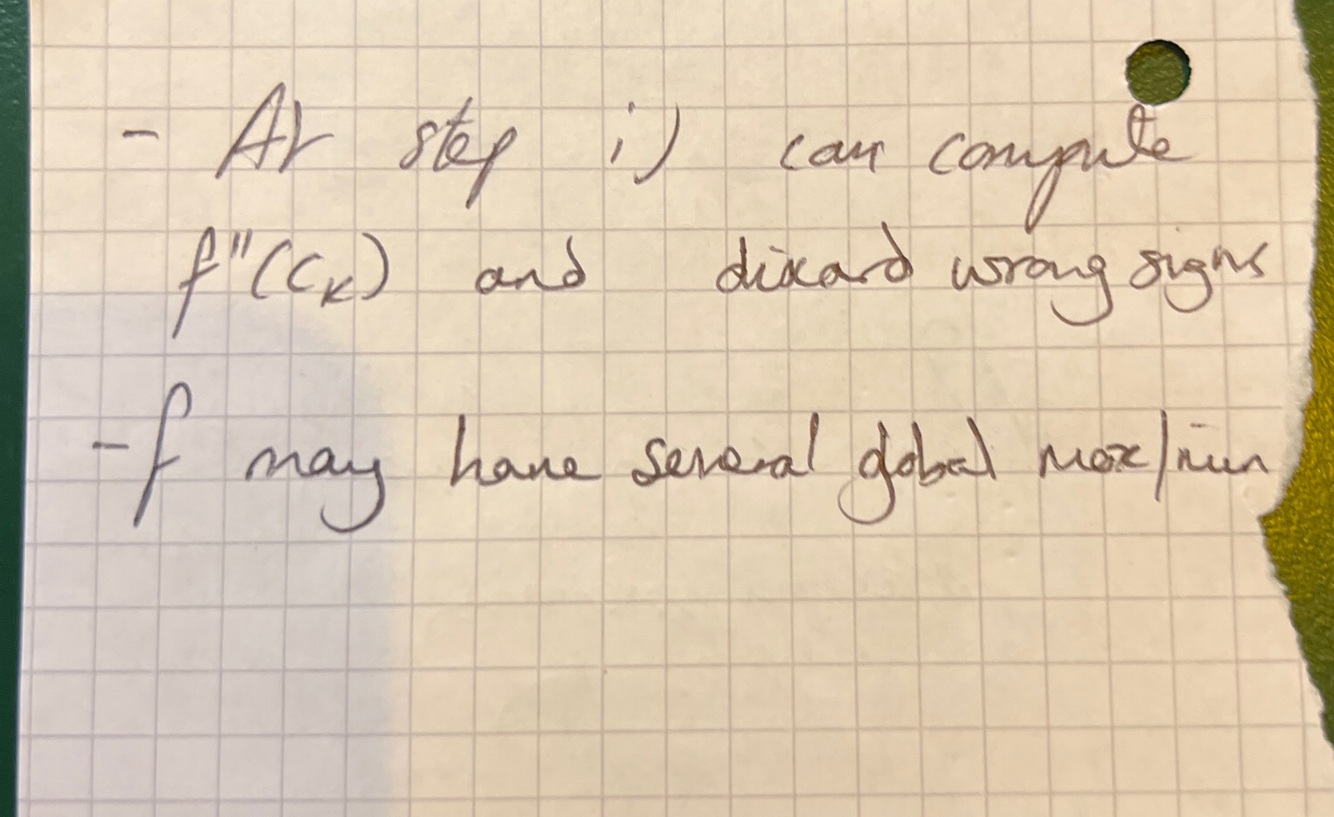 - At step i) can compute
f"(c_k) and discard wrong signs
- f may have several global max/min